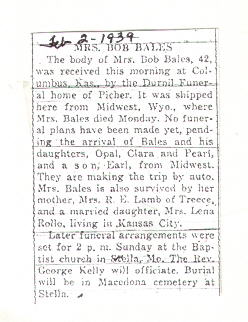 Feb 2-1939
MRS. BOB BALES
The body of Mrs. Bob Bales, 42,
was received this morning at Col-
umbus, Kas., by the Durnil Funer-
al home of Picher. It was shipped
here from Midwest, Wyo., where
Mrs. Bales died Monday. No funer-
al plans have been made yet, pend-
ing the arrival of Bales and his
daughters, Opal, Clara and Pearl,
and a son, Earl, from Midwest.
They are making the trip by auto.
Mrs. Bales is also survived by her
mother, Mrs. R. E. Lamb of Treece,
and a married daughter, Mrs. Lena
Rollo, living in Kansas City.
Later funeral arrangements were
set for 2 p. m. Sunday at the Bap-
tist church in Stella, Mo. The Rev.
George Kelly will officiate. Burial
will be in Macedona cemetery at
Stella.